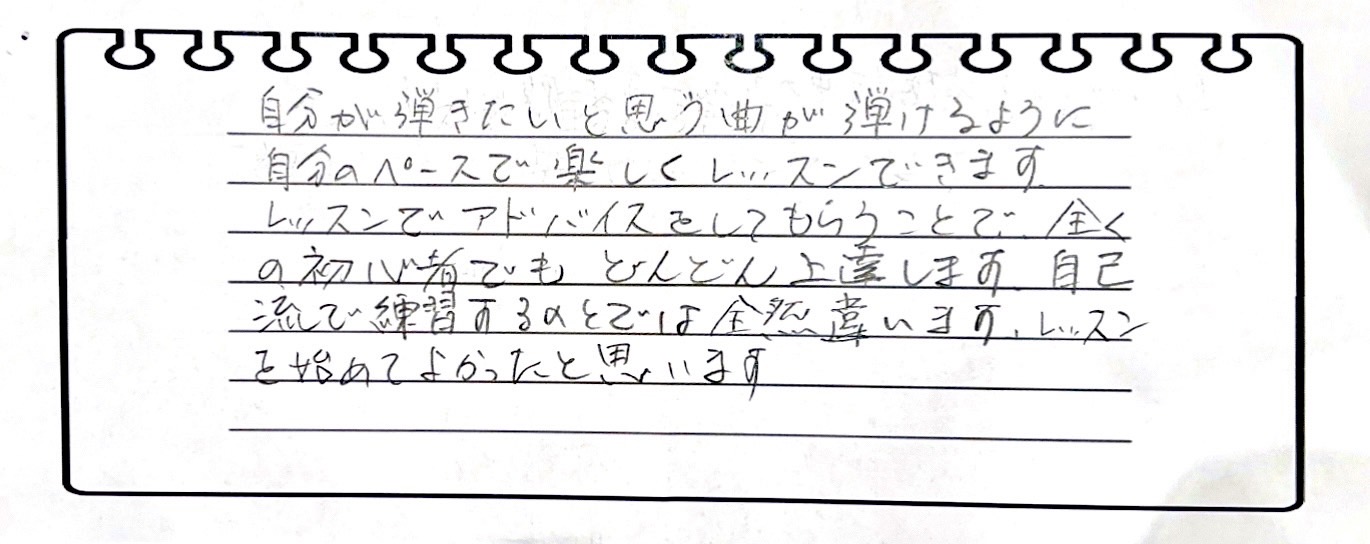 自分が弾きたいと思う曲が弾けるように
自分のペースで楽しくレッスンできます
レッスンでアドバイスをしてもらうことで、全く
の初心者でもどんどん上達します。自己
流で練習するのとでは全然違います、レッスン
を始めてよかったと思います